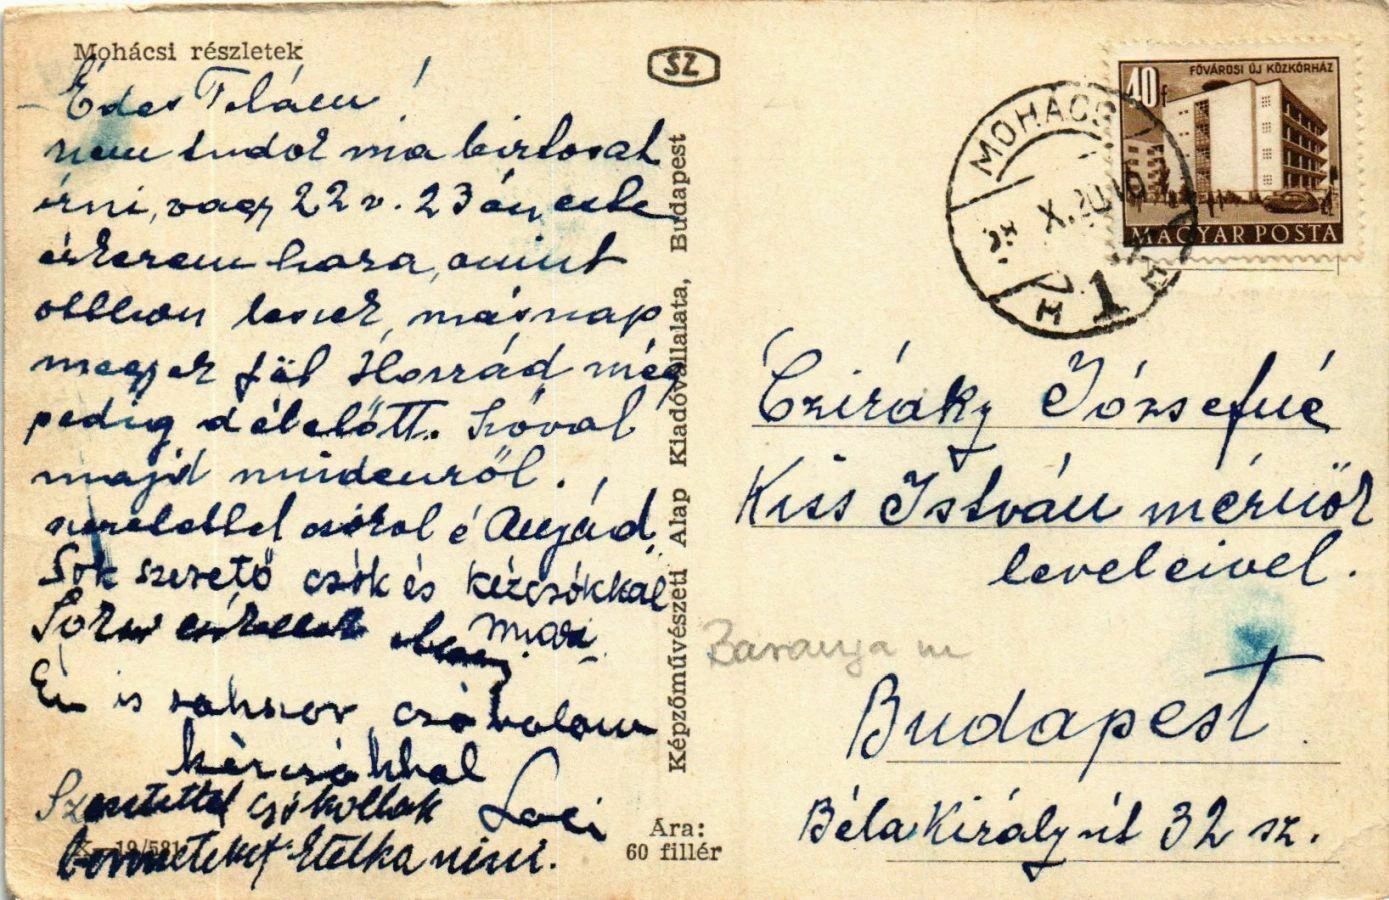 Mohácsi részletek
SZ
Édes Telám!
nem tudok ma biztosat
írni, vagy 22 v. 23 án este
érkezem haza, amint
otthon leszek, másnap
megyek föl Hozzád még
pedig délelőtt. Szóval
majd mindenről.
szeretettel csókol é Anyád
Sok szerető csók és kézcsókkal
Mari
Én is sokszor csókolom
kézcsókkal
Szeretettel csókollak Laci
benneteket Etelka néni.
60 fillér
Ára:
Képzőművészeti Alap Kiadóvállalata, Budapest
40 f
FŐVÁROSI ÚJ KÖZKÓRHÁZ
MAGYAR POSTA
MOHÁCS
1
Cziráky Józsefné
Kiss István mérnök
leveleivel.
Baranya m
Budapest
Béla Király út 32 sz.